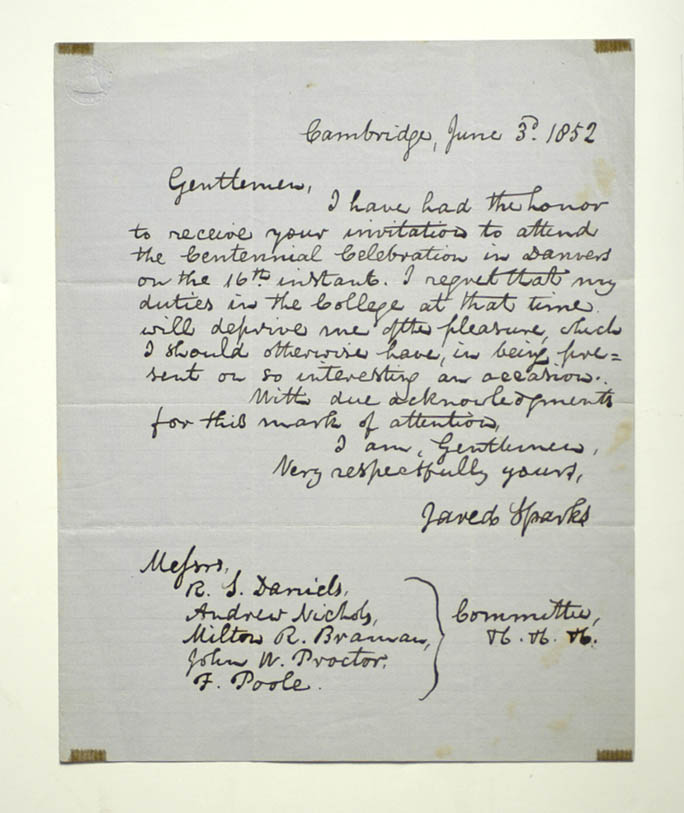 Cambridge, June 3d. 1852
Gentlemen,
I have had the honor
to receive your invitation to attend
the Centennial Celebration in Danvers
on the 16th instant. I regret that my
duties in the College at that time
will deprive me of the pleasure, which
I should otherwise have, in being pre=
sent on so interesting an occasion.
With due acknowledgments
for this mark of attention,
I am, Gentlemen,
Very respectfully yours,
Jared Sparks
Messrs,
R. S. Daniels,
Andrew Nichols,
Milton P. Braman,
John W. Proctor,
F. Poole.
Committee,
&c. &c. &c.